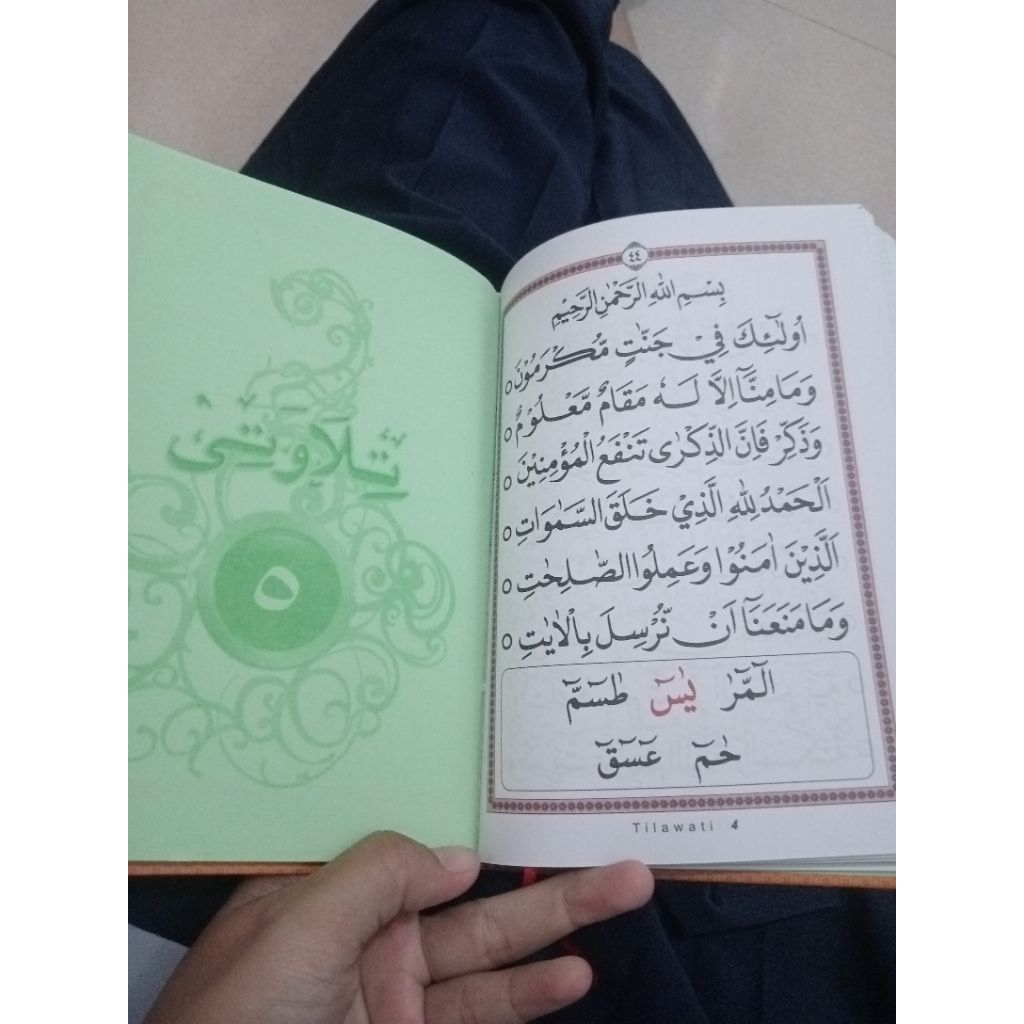 ٤٤
بِسْمِ اللهِ الرَّحْمٰنِ الرَّحِيْمِ
اُولٰٓئِكَ فِيْ جَنّٰتٍ مُّكْرَمُوْنَ ○
وَمَا مِنَّآ اِلَّا لَهٗ مَقَامٌ مَّعْلُوْمٌ ○
وَذَكِّرْ فَاِنَّ الذِّكْرٰى تَنْفَعُ الْمُؤْمِنِيْنَ ○
اَلْحَمْدُ لِلّٰهِ الَّذِيْ خَلَقَ السَّمٰوَاتِ ○
اَلَّذِيْنَ اٰمَنُوْا وَعَمِلُوا الصّٰلِحٰتِ ○
وَمَا مَنَعَنَآ اَنْ نُّرْسِلَ بِالْاٰيٰتِ ○
الٓمّٓرٰ يٰسٓ طٰسٓمّٓ
حٰمٓ عٓسٓقٓ
Tilawati 4
تِلَاوَتِيْ
٥